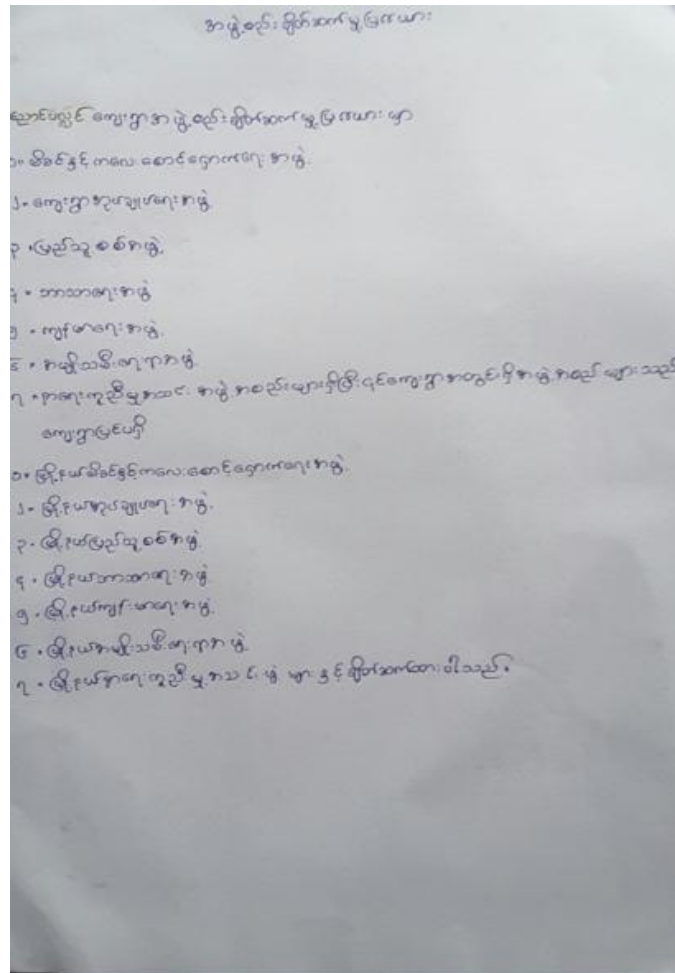 အဖွဲ့စည်းချိတ်ဆက်မှုပြဇယား
ညောင်ပင်လွင် ကျေးရွာအဖွဲ့စည်းချိတ်ဆက်မှုပြဇယားမှာ
၁။ မိခင်နှင့်ကလေးစောင့်ရှောက်ရေးအဖွဲ့
၂။ ကျေးရွာအုပ်ချုပ်ရေးအဖွဲ့
၃။ ပြည်သူ့စစ်အဖွဲ့
၄။ ဘာသာရေးအဖွဲ့
၅။ ကျန်းမာရေးအဖွဲ့
၆။ အမျိုးသမီးရေးရာအဖွဲ့
၇။ နာရေးကူညီမှုအသင်း အဖွဲ့အစည်းများရှိပြီး၎င်းကျေးရွာအတွင်းရှိအဖွဲ့အစည်းများသည်
ကျေးရွာပြင်ပရှိ
၁။ မြို့နယ်မိခင်နှင့်ကလေးစောင့်ရှောက်ရေးအဖွဲ့
၂။ မြို့နယ်အုပ်ချုပ်ရေးအဖွဲ့
၃။ မြို့နယ်ပြည်သူ့စစ်အဖွဲ့
၄။ မြို့နယ်ဘာသာရေးအဖွဲ့
၅။ မြို့နယ်ကျန်းမာရေးအဖွဲ့
၆။ မြို့နယ်အမျိုးသမီးရေးရာအဖွဲ့
၇။ မြို့နယ်နာရေးကူညီမှုအသင်းဖွဲ့ များနှင့်ချိတ်ဆက်ထားပါသည်။